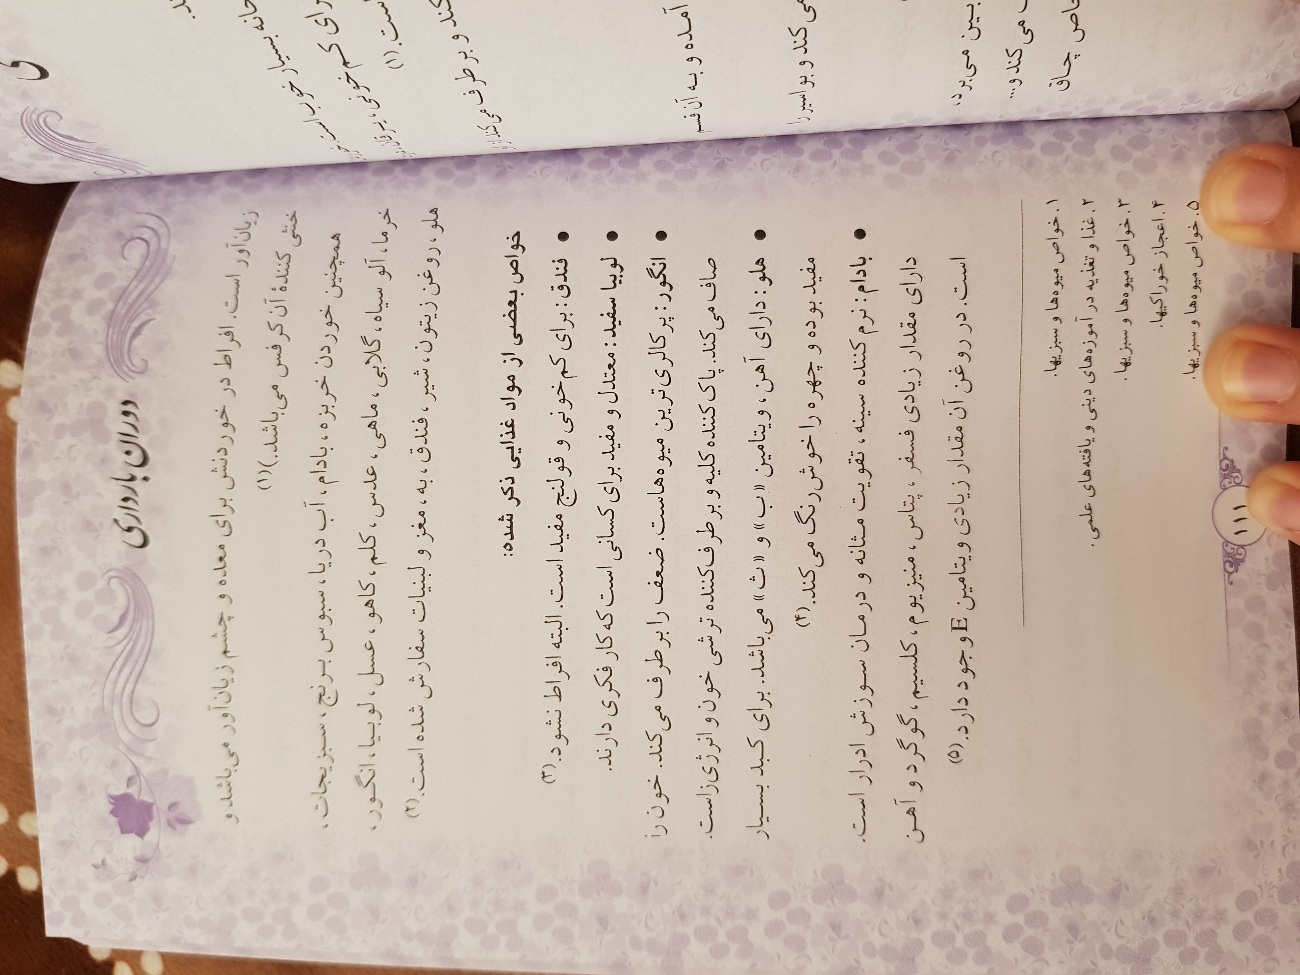 دوران بارداری
زیان‌آور است. افراط در خوردنش برای معده و چشم زیان‌آور می‌باشد و
خنثی کنندهٔ آن کرفس می‌باشد.)(۱)
همچنین خوردن خربزه، بادام، آب دریا، سبوس برنج، سبزیجات،
خرما، آلو سیاه، گلابی، ماهی، عدس، کلم، کاهو، عسل، لوبیا، انگور،
هلو، روغن زیتون، شیر، فندق، به، مغز و لبنیات سفارش شده است.(۲)
خواص بعضی از مواد غذایی ذکر شده:
● فندق: برای کم‌خونی و قولنج مفید است. البته افراط نشود.(۳)
● لوبیا سفید: معتدل و مفید برای کسانی است که کار فکری دارند.
● انگور: پرکالری‌ترین میوه‌هاست. ضعف را برطرف می‌کند. خون را
صاف می‌کند. پاک‌کننده کلیه و برطرف‌کننده ترشی خون و انرژی‌زاست.
● هلو: دارای آهن، ویتامین «ب» و «ث» می‌باشد. برای کبد بسیار
مفید بوده و چهره را خوش‌رنگ می‌کند.(۴)
● بادام: نرم کننده سینه، تقویت مثانه و درمان سوزش ادرار است.
دارای مقدار زیادی فسفر، پتاس، منیزیوم، کلسیم، گوگرد و آهن
است. در روغن آن مقدار زیادی ویتامین E وجود دارد.(۵)
۱. خواص میوه‌ها و سبزیها.
۲. غذا و تغذیه در آموزه‌های دینی و یافته‌های علمی.
۳. خواص میوه‌ها و سبزیها.
۴. اعجاز خوراکیها.
۵. خواص میوه‌ها و سبزیها.
۱۱۱
بسیار خوب است
برای کم‌خونی، یرقان
است.(۱)
کند و برطرف می‌کند
آمده و به آن قسم
می‌کند و بواسیر را
بین می‌برد،
می‌کند و...
چاق